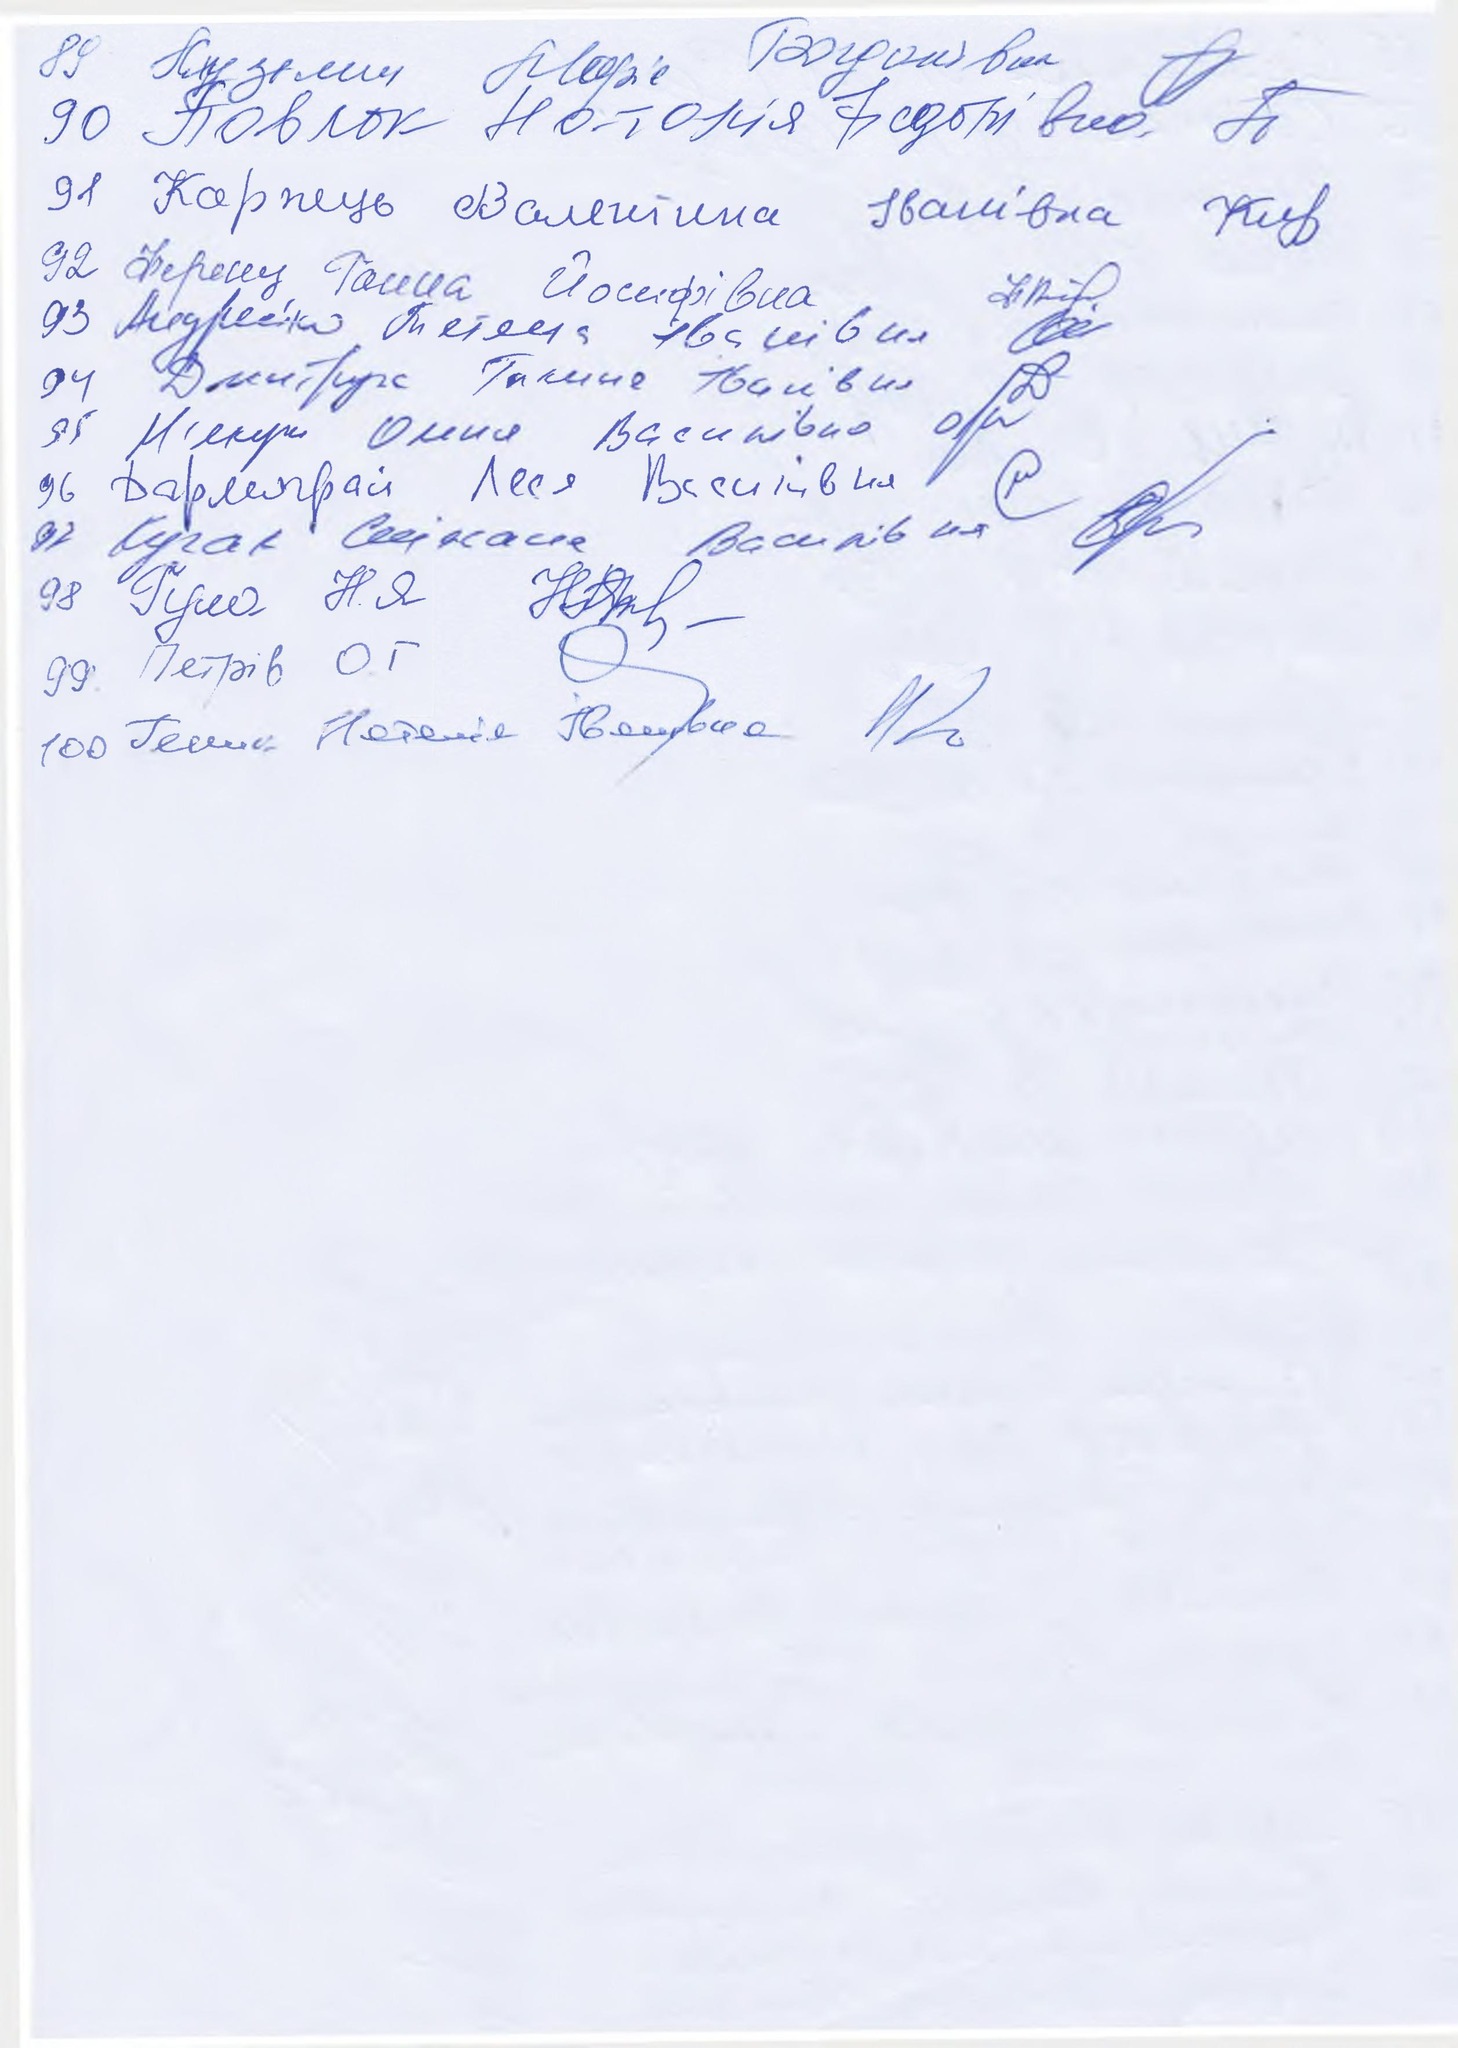 89 Кузьмин Марія Богданівна
90 Павлюк Наталія Федотівна.
91 Карпець Валентина Іванівна
92 Ференц Ганна Йосифівна
93 Андрейко Тетяна Іванівна
94 Дмитрук Галина Іванівна
95 Ольга Василівна
96 Дармограй Леся Василівна
97 Кугак Василівна
98 Гула Н.Я
99. Петрів О Г
100 Наталія Іванівна